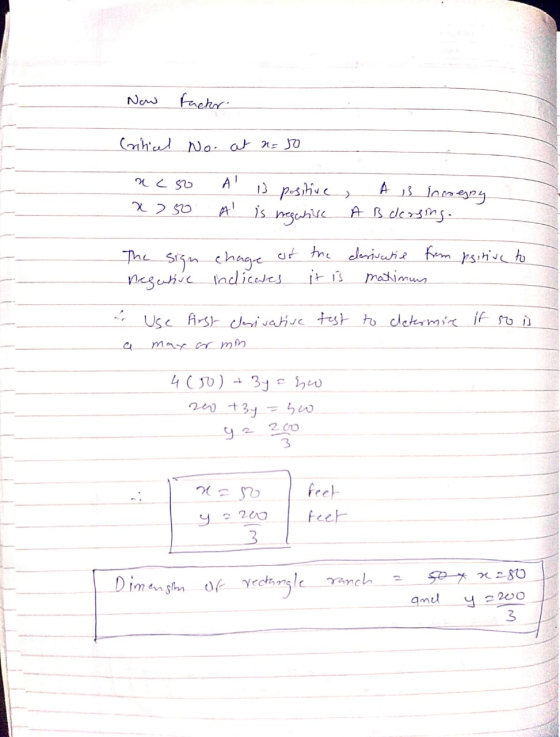 Now factor.
Critical No. at x = 50
x < 50 A' is positive, A is Increasing
x > 50 A' is negative A is decrsing.
The sign change of the derivative from positive to
negative indicates it is maximum
∴ Use first derivative test to determine if 50 is
a max or min
4(50) + 3y = 400
200 + 3y = 400
y = 200/3
∴ x = 50 feet
y = 200/3 feet
Dimension of rectangle ranch = x = 50
and y = 200/3